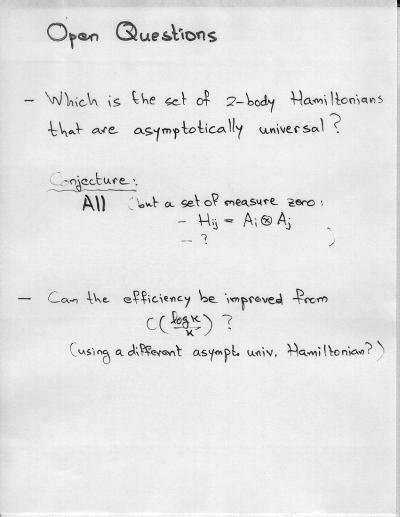 Open Questions
- Which is the set of 2-body Hamiltonians
that are asymptotically universal?
Conjecture:
All (but a set of measure zero:
- Hij = Ai⊗Aj
- ? )
- Can the efficiency be improved from
C(log κ/κ) ?
(using a different asympt. univ. Hamiltonian?)